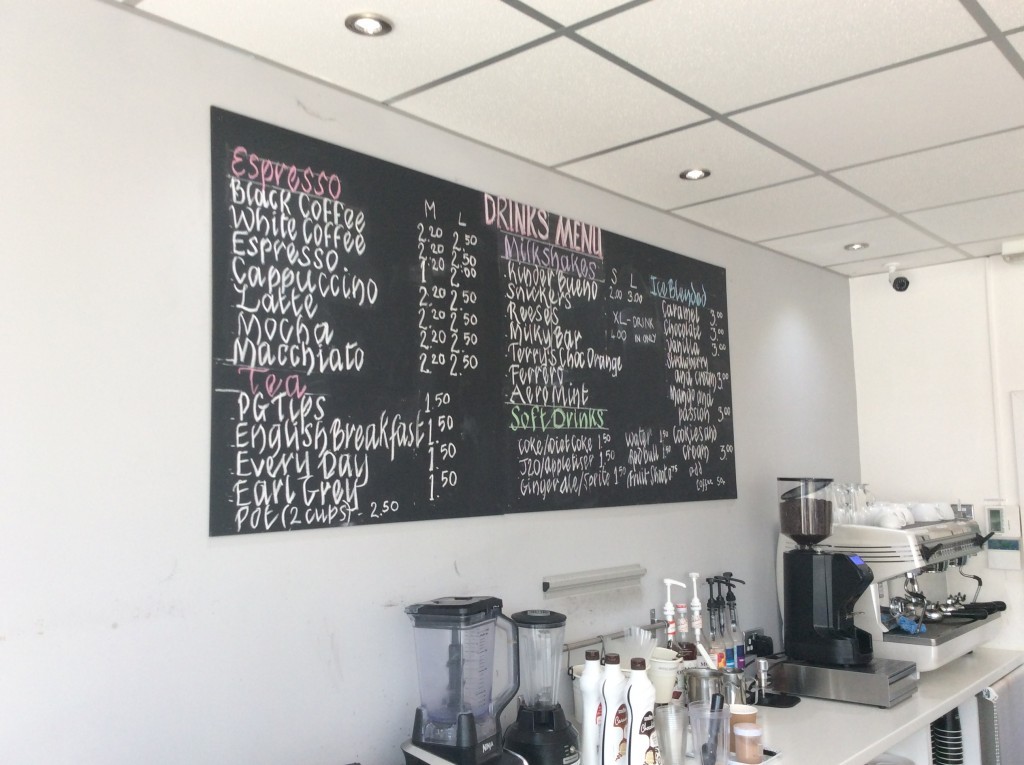 DRINKS MENU
Espresso
M L
Black Coffee 2.20 2.50
White Coffee 2.20 2.50
Espresso 1. 2.00
Cappuccino 2.20 2.50
Latte 2.20 2.50
Mocha 2.20 2.50
Macchiato 2.20 2.50
Tea
PG Tips 1.50
English Breakfast 1.50
Every Day 1.50
Earl Grey 1.50
Pot (2 cups) - 2.50
Milkshakes
S L
2.00 3.00
Kinder Bueno
Snickers
Reese's
Milky Bar
Terry's Choc Orange
Ferrero
Aero Mint
XL - DRINK
4.00 IN ONLY
Soft Drinks
Coke/Diet Coke 1.50
J2O/appletiser 1.50
Ginger ale/Sprite 1.50
Water 1.90
Red bull 1.90
Fruit Shoot 75
Ice Blended
Caramel 3.00
Chocolate 3.00
Vanilla 3.00
Strawberry
and cream 3.00
Mango and
passion 3.00
Cookies and
cream 3.00
add
coffee 50p
NINJA